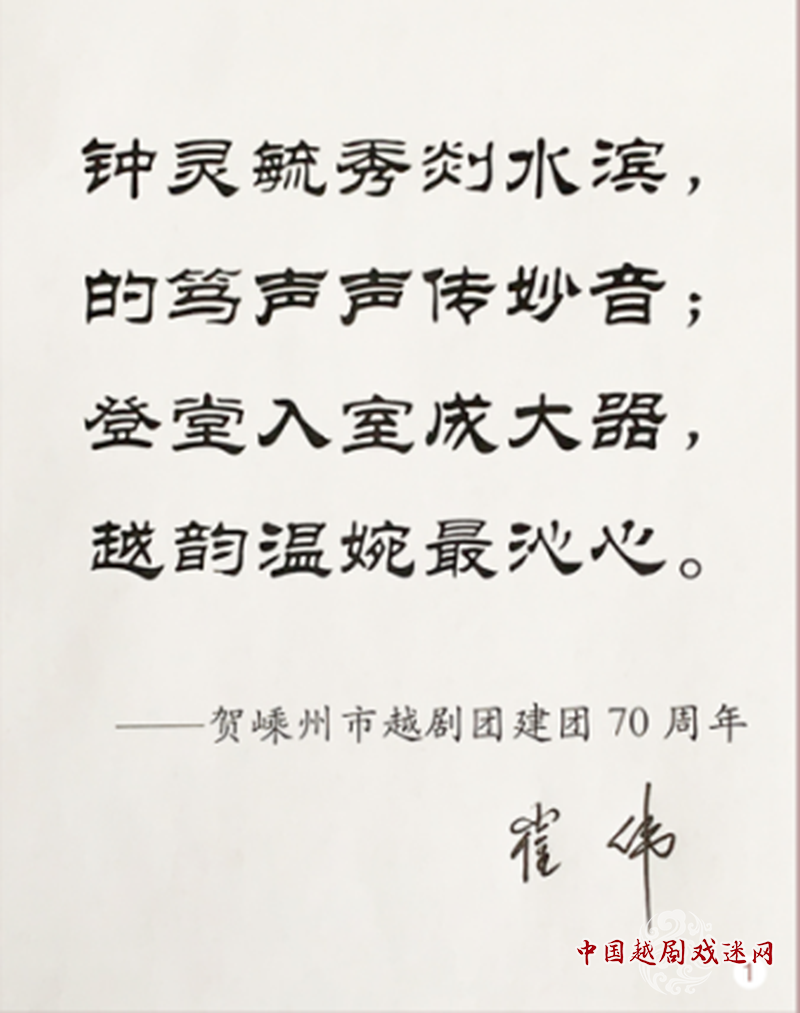 钟灵毓秀剡水滨，
的笃声声传妙音；
登堂入室成大器，
越韵温婉最沁心。
——贺嵊州市越剧团建团 70 周年
崔伟
中国越剧戏迷网
1